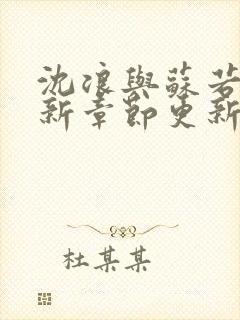 沈浪與蘇若
新章節更新
杜某某